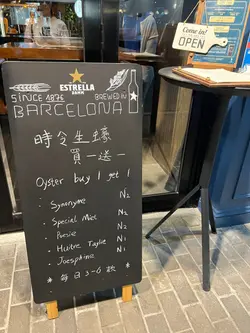 ESTRELLA
DAMM
SINCE 1876
BREWED IN
BARCELONA
時令生蠔
買一送一
Oyster buy 1 get 1
· Synonyme N2
· Special Miel N2
· Poésie N2
· Huitre N1
· Josephine N1
* 每日3-6 *
Come in!
OPEN